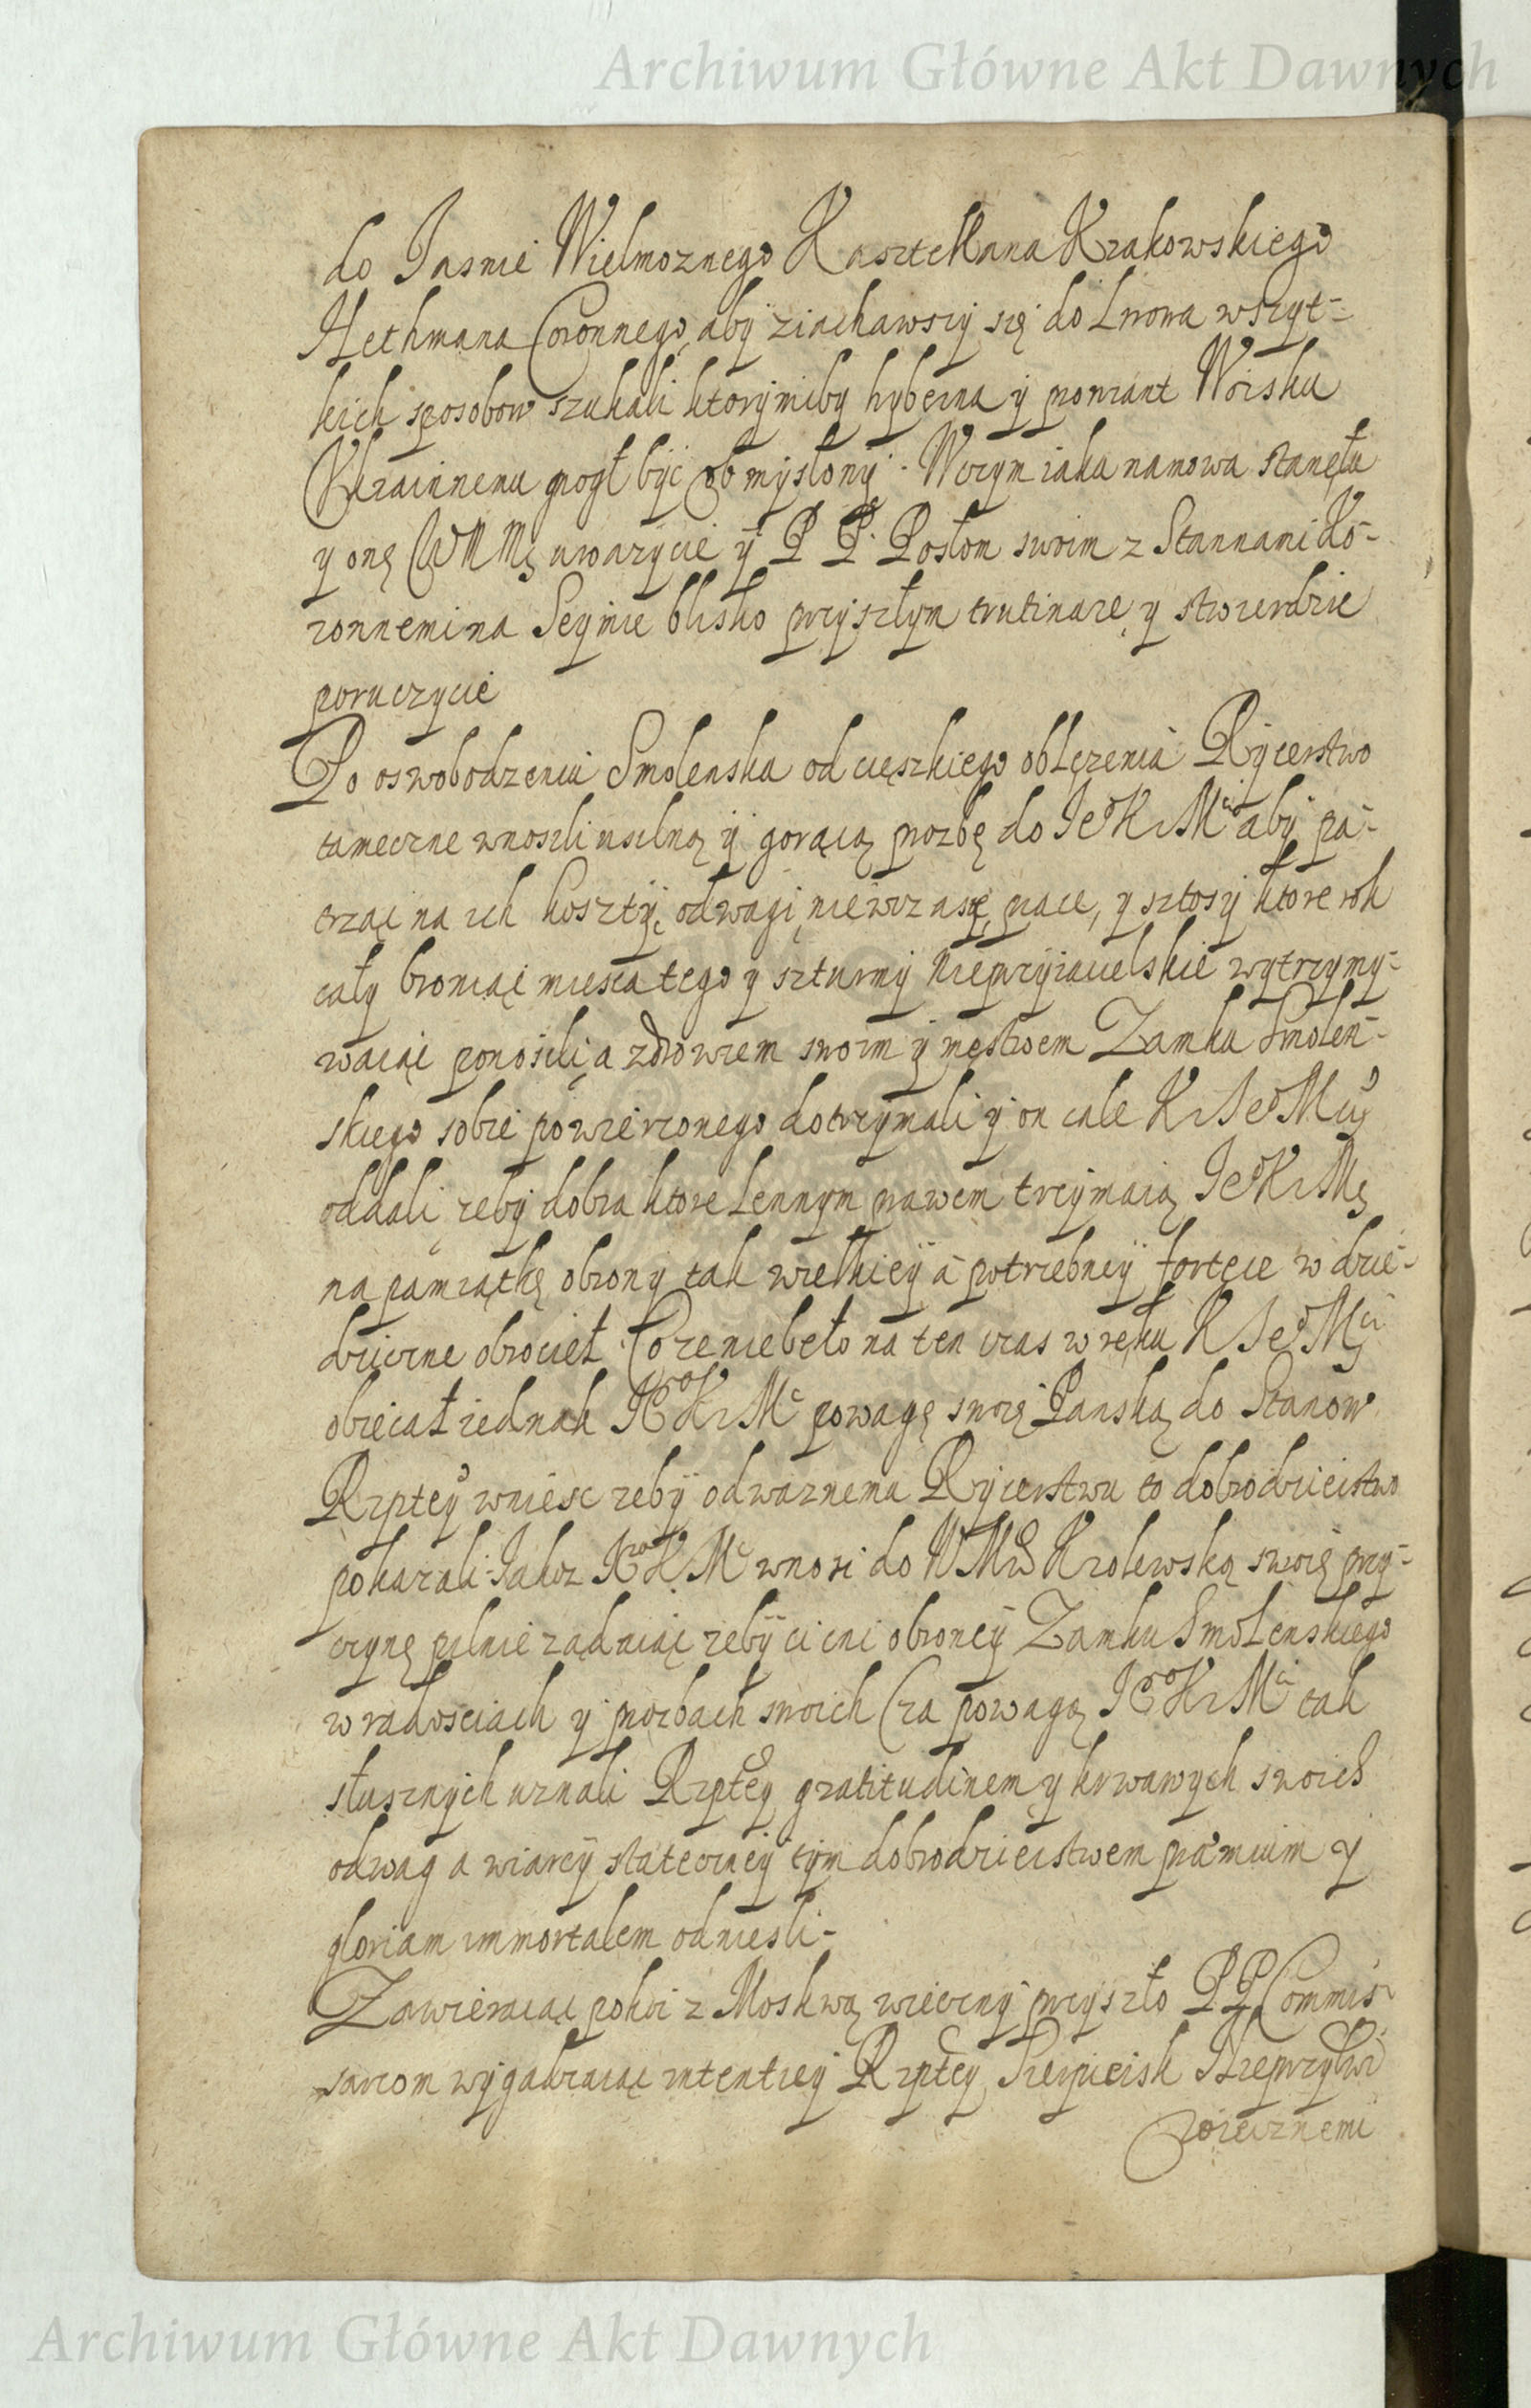 Archiwum Główne Akt Dawnych
do Jasnie Wielmoznego Kasztellana Krakowskiego
Hethmana Coronnego, aby ziachawszy się do Lwowa wszyt-
kich sposobow szukali ktorymiby hyberna y prowiant Woisku
Ukrainnemu mogł być obmyslony. Wczym iaka namowa stanęła
y onę WMMę uwazycie y P P. Posłom swoim z Stannami Ko-
ronnemi na Seymie blisko przyszłym trutinare y stwierdzic
poruczycie
Po oswobodzeniu Smolenska od cięszkiego oblęzenia Rycerstwo
tameczne wnosili usilną y gorącą prozbę do Je° K. Mci aby pa-
trząc na ich koszty, odwagi, niewczasy, prace, y sztosy ktore rok
cały broniąc miesca tego y szturmy nieprzyiacielskie wytrzymy-
waiąc ponosili, a zdrowiem swoim y męstwem Zamku Smolen-
skiego sobie powierzonego dotrzymali y on cale K. Je° Mci
oddali, zeby dobra ktore Lennym prawem trzymaią Je° K. Mć
na pamiątkę obrony tak wielkiey a potrzebney fortece w dzie-
dziczne obrociel. Co ze niebeło na ten czas w ręku K Je° Mci
obiecał iednak JE° K. Mć powagę swoię Pańską do Stanow
Rzptey wniesc zeby odwaznemu Rycerstwu to dobrodzieistwo
pokazali. Jakoz JE° K. Mć wnosi do WMMę Krolewską swoię przy-
czynę pilnie ządaiąc zeby ci cni obroncy Zamku Smolenskiego
w radosciach y prozbach swoich (za powagą JE° K. Mci tak
słusznych uznali Rzptey gratitudinem y krwawych swoich
odwag a wiary stateczney tym dobrodzieistwem præmium y
gloriam immortalem odniesli-
Zawieraiąc pokoi z Moskwą wieczny przyszło PP Commis-
sarzom wygadzaiąc intentiey Rzptey Sierpieisk
wiecznemi
Archiwum Główne Akt Dawnych